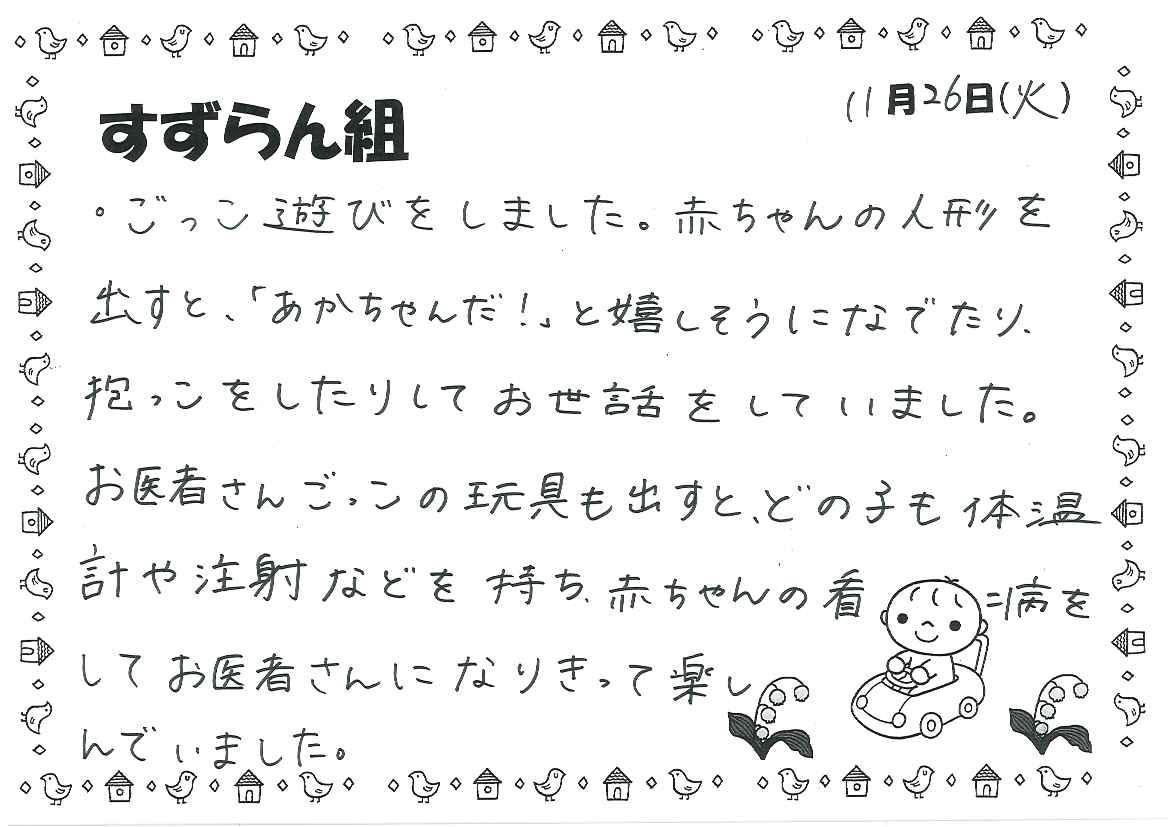 11月26日(火)
すずらん組
・ごっこ遊びをしました。赤ちゃんの人形を
出すと、「あかちゃんだ!」と嬉しそうになでたり、
抱っこをしたりしてお世話をしていました。
お医者さんごっこの玩具も出すと、どの子も体温
計や注射などを持ち、赤ちゃんの看病を
してお医者さんになりきって楽し
んでいました。